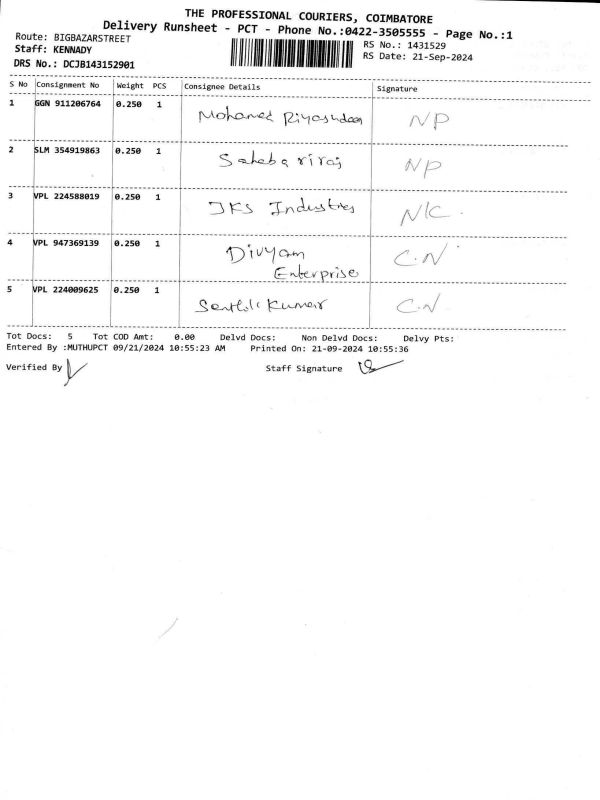 THE PROFESSIONAL COURIERS, COIMBATORE
Delivery Runsheet - PCT - Phone No.:0422-3505555 - Page No.:1
Route: BIGBAZARSTREET
RS No.: 1431529
Staff: KENNADY
RS Date: 21-Sep-2024
DRS No.: DCJB143152901
S No Consignment No Weight PCS Consignee Details Signature
1 GGN 911206764 0.250 1 Mohamed Riyasudeen NP
2 SLM 354919863 0.250 1 NP
3 VPL 224588019 0.250 1 JKS Industries N/C.
4 VPL 947369139 0.250 1 Divyam C.N
Enterprise
5 VPL 224009625 0.250 1 Senthil Kumar C.N.
Tot Docs: 5 Tot COD Amt: 0.00 Delvd Docs: Non Delvd Docs: Delvy Pts:
Entered By :MUTHUPCT 09/21/2024 10:55:23 AM Printed On: 21-09-2024 10:55:36
Verified By Staff Signature